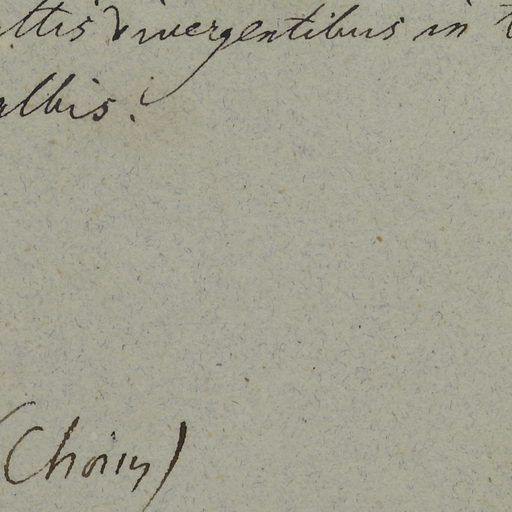 ttis divergentibus in t
albis.
(Choisy)